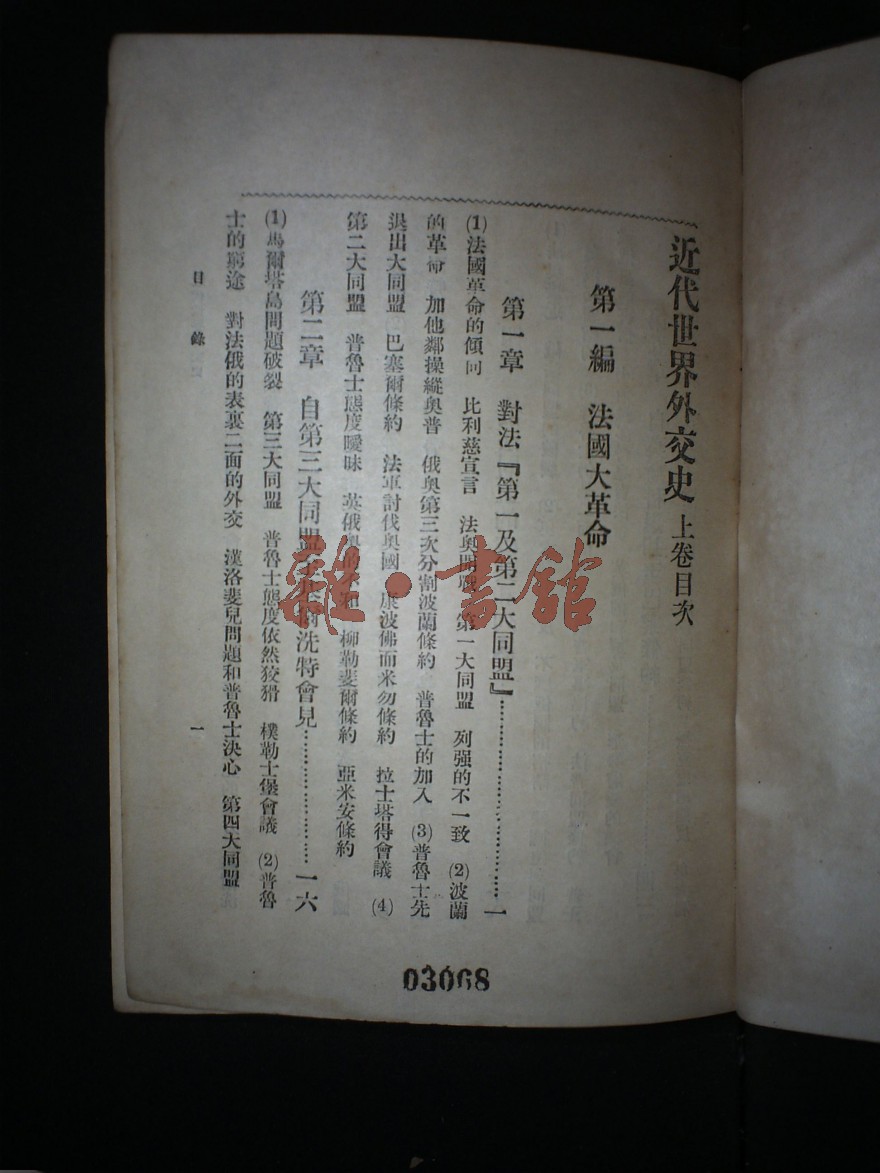 近代世界外交史 上卷目次
第一編 法國大革命
第一章 對法『第一及第二大同盟』……………………一
(1)法國革命的傾向 比利慈宣言 法奧開戰 第一大同盟 列强的不一致 (2)波蘭
的革命 加他鄰操縱奧普 俄奧第三次分割波蘭條約 普魯士的加入 (3)普魯士先
退出大同盟 巴塞爾條約 法軍討伐奧國 康波佛而米勿條約 拉士塔得會議 (4)
第二大同盟 普魯士態度曖昧 英俄奧的不和 柳勒斐爾條約 亞米安條約
第二章 自第三大同盟至 洗特會見……………………一六
(1)馬爾塔島問題破裂 第三大同盟 普魯士態度依然狡猾 樸勒士堡會議 (2)普魯
士的窮途 對法俄的表裏二面的外交 漢洛斐兒問題和普魯士決心 第四大同盟
目錄
一
03068
雜·書館